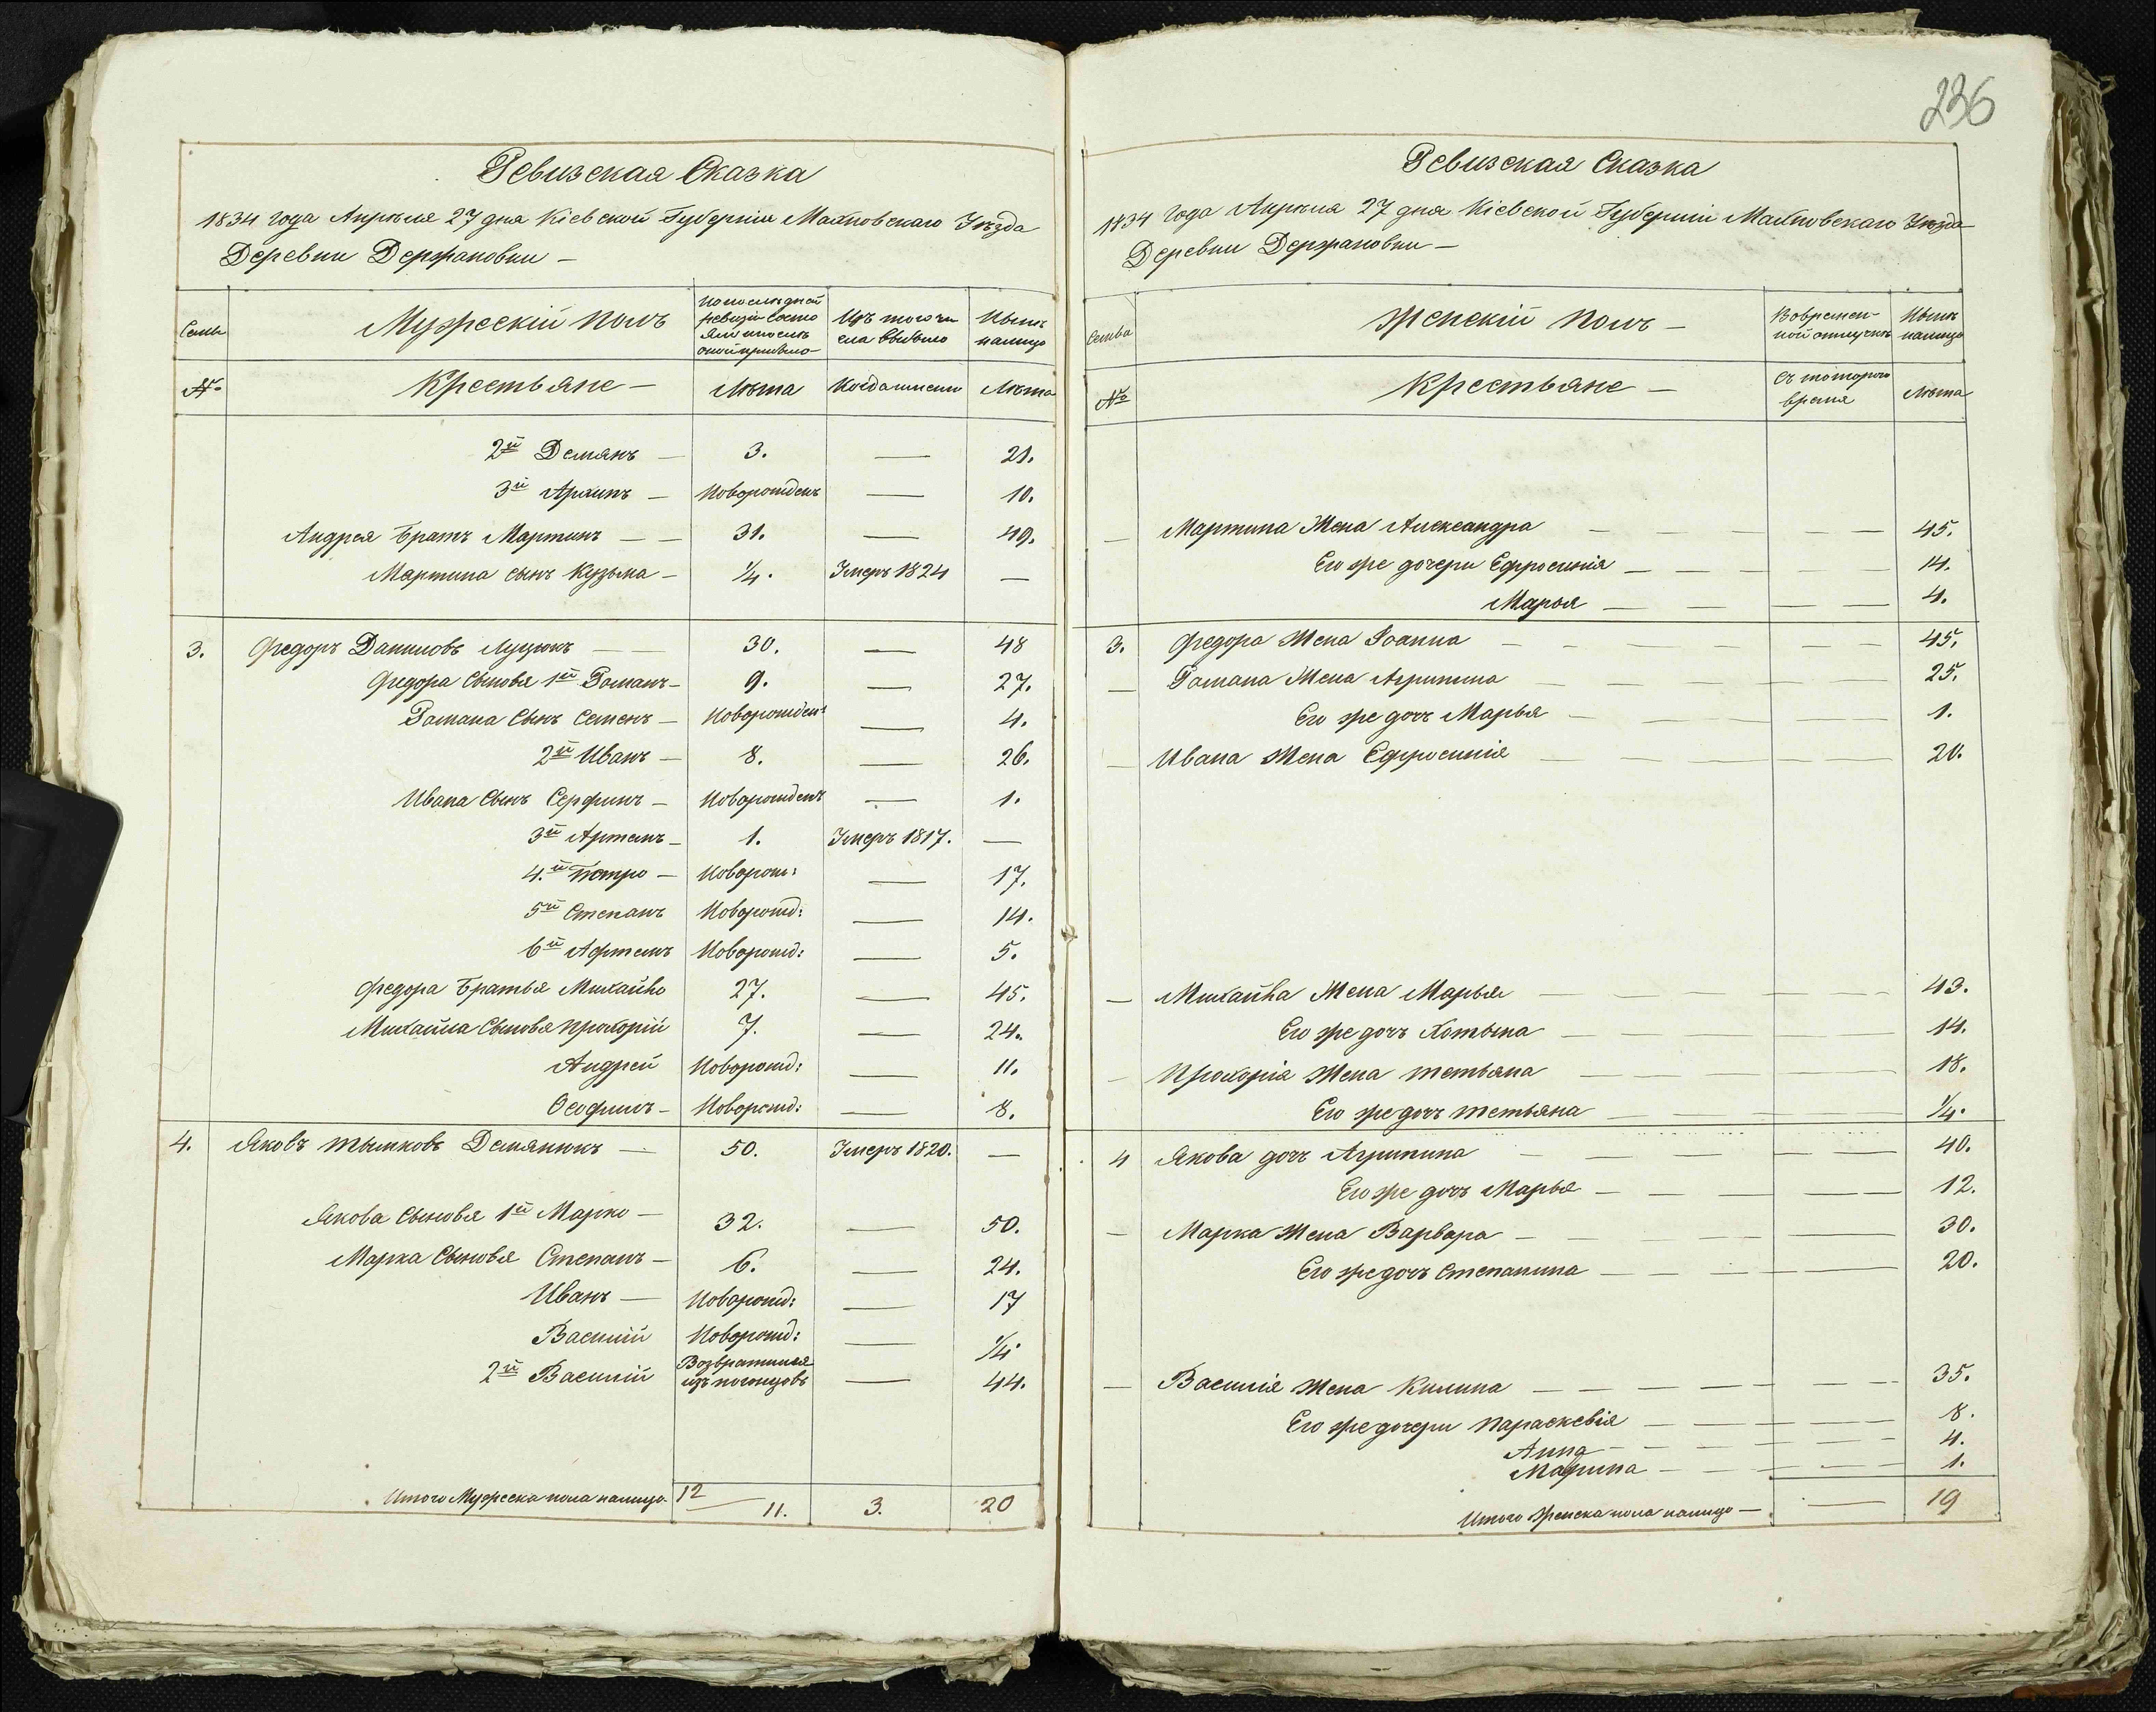 Ревизская Сказка
1834 года Апрѣля 27 дня Кіевской Губерніи Махновскаго Уѣзда
Деревни Держановки —
Семьи
Мужескій полъ
По последней ревизіи состояло и после оной прибыло
Изъ того числа выбыло
Нынѣ налицо
№
Крестьяне —
Лѣта
Когда именно
Лѣта
2й Демянъ — 3. — 21.
3й Архипъ — Новорожденъ — 10.
Андрея Братъ Мартинъ — — 31. — 49.
Мартина сынъ Кузьма — 1/4. Умеръ 1824 —
3. Федоръ Даниловъ Луцюкъ — — 30. — 48
Федора Сыновья 1й Романъ — 9. — 27.
Романа Сынъ Семенъ — Новорожден: — 4.
2й Иванъ — 8. — 26.
Ивана Сынъ Серфинъ — Новорожденъ — 1.
3й Артемъ — 1. Умеръ 1817. —
4.й Петро — Новорож: — 17.
5й Степанъ Новорожд: — 14.
6й Артемъ Новорожд: — 5.
Федора Братья Михайло 27. — 45.
Михайла Сыновья Прохорій 7. — 24.
Андрей Новорожд: — 11.
Феофилъ — Новорожд: — 8.
4. Яковъ Тымковъ Демянюкъ — 50. Умеръ 1820. —
Якова Сыновья 1й Марко — 32. — 50.
Марка Сыновья Степанъ — 6. — 24.
Иванъ — Новорожд: — 17
Василій Новорожд: — 1/4
2й Василій Возвратился изъ погонцовъ — 44.
Итого Мужеска пола налицо. 12 — 11. 3. 20
236
Ревизская Сказка
1834 года Апрѣля 27 дня Кіевской Губерніи Махновскаго Уѣзда
Деревни Держановки —
Семьа
Женскій полъ —
Вовременной отлучкѣ
Нынѣ налицо
№
Крестьяне —
Съ котораго время
Лѣта
— Мартина Жена Александра — — — — — 45.
Его же дочери Ефросинія — — — — — 14.
Марья — — — — 4.
3. Федора Жена Іоанна — — — — — — 45.
— Романа Жена Агрипина — — — — — 25.
Его же дочь Марья — — — — — 1.
— Ивана Жена Ефросинія — — — — — 20.
— Михайла Жена Марья — — — — — 43.
Его же дочь Хотына — — — — — 14.
— Прохорія Жена Тетьяна — — — — 18.
Его же дочь Тетьяна — — — — 1/4.
4 Якова дочь Агрипина — — — — — 40.
Его же дочь Марья — — — — — 12.
— Марка Жена Варвара — — — — — 30.
Его же дочь Степанина — — — — 20.
— Василія Жена Килина — — — — — — 35.
Его же дочери Параскевія — — — — 8.
Анна — — — — 4.
Марина — — — — 1.
Итого Женска пола налицо — — 19